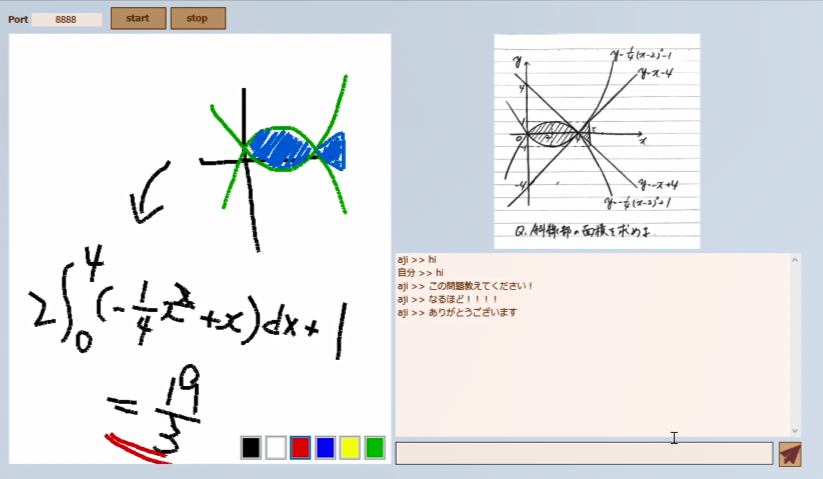 Port 8888 start stop
2∫₀⁴(-1/4x²+x)dx+1
= 19/3
y=1/4(x-2)²-1
y
y=x-4
4
1
0
2
4
5
x
-1
-4
y=-x+4
y=-1/4(x-2)²+1
Q. 斜線部の面積を求めよ.
aji >> hi
自分 >> hi
aji >> この問題教えてください！
aji >> なるほど！！！！
aji >> ありがとうございます